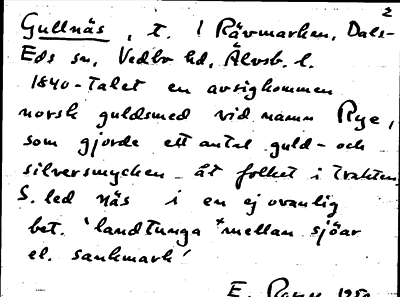 2
Gullnäs, t. i Rävmarken, Dals-
Eds sn, Vedbo hd, Älvsb. l.
1840-talet en avsigkommen
norsk guldsmed vid namn Rye,
som gjorde ett antal guld- och
silversmycken åt folket i trakten.
S. led näs i en ej ovanlig
bet. 'landtunga mellan sjöar
el. sankmark'
E. 1950